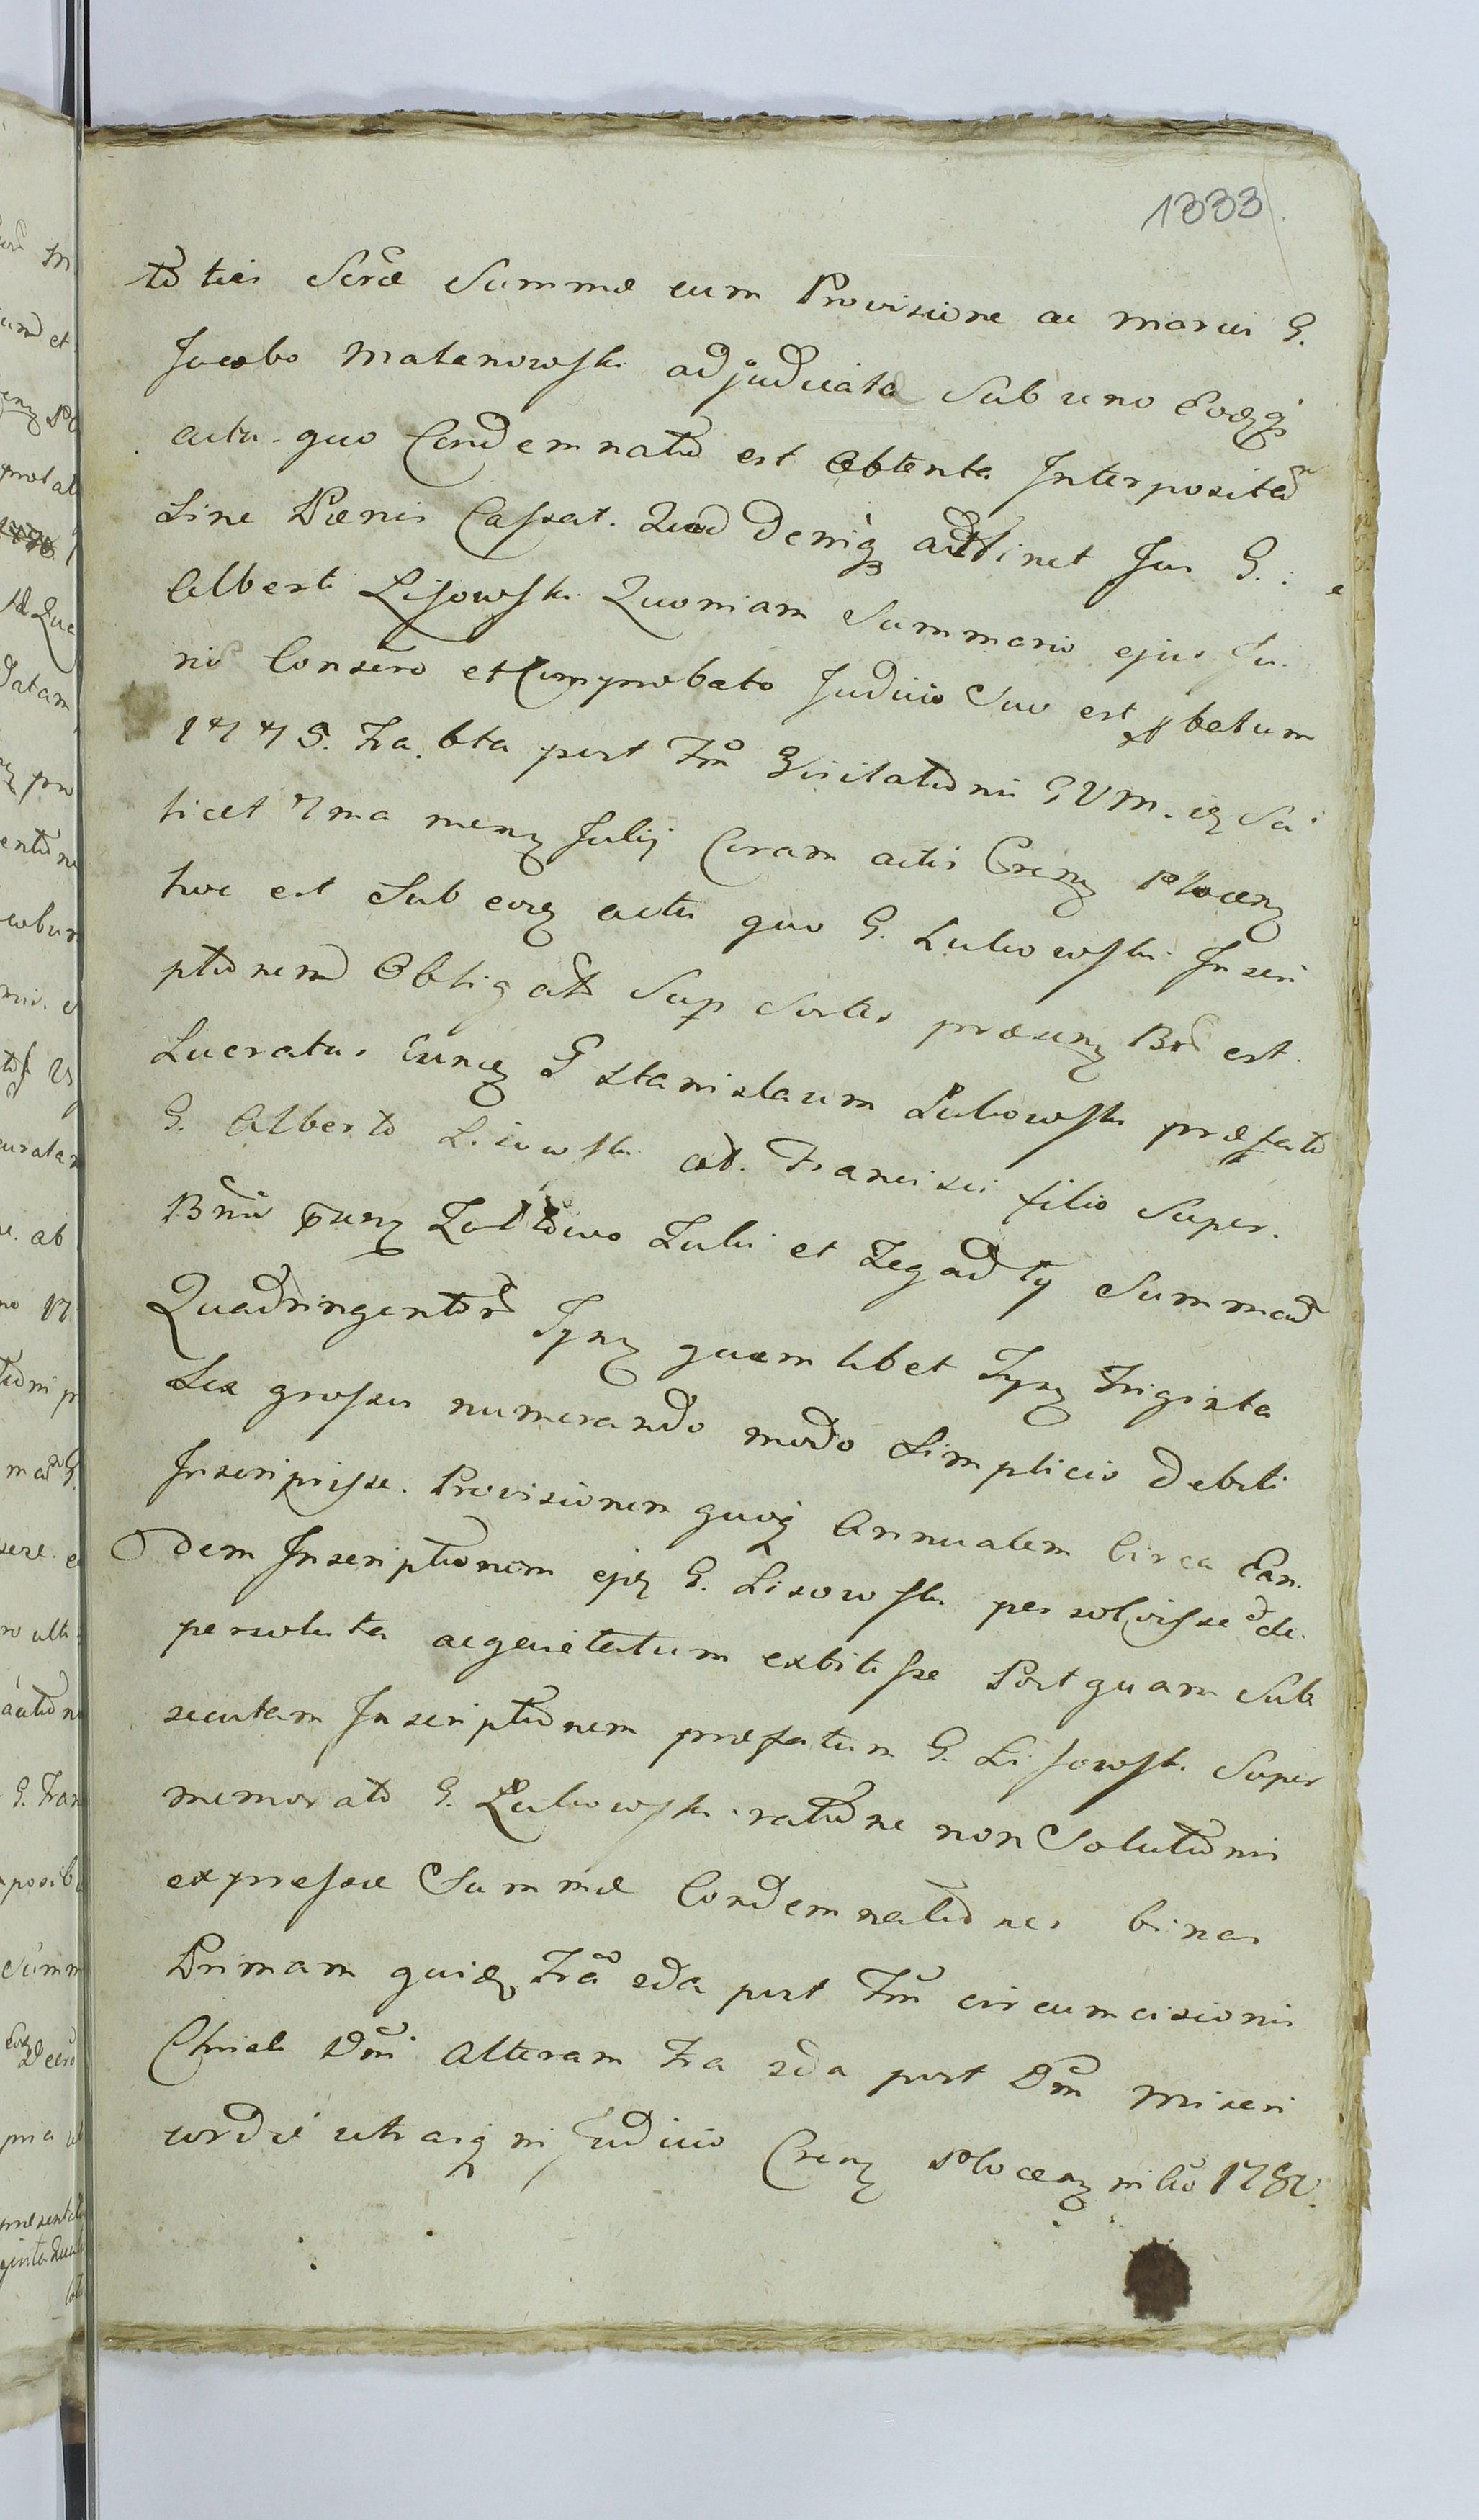 1333
to ties Scræ Summæ cum Provisione ac marcis G.
Jacobo Malanowski adjudicata Sub uno Eodqz
actu quo Condemnatio est Obtenta Interposita
Sine Pœnis Cassat. Quod deniqz attinet Jus G.
Alberti Lisowski Quoniam Summario ejus Ju
ris Consero et Comprobato Judicio Suo est
1775. Fra. 6ta post Fm Visitationis BVM. iz Sci
licet 7ma menz Julij Coram actis Crenz Plocenz
hoc est Sub eoz actu quo G. Lubowski Inscri
ptionem Obligat Sup Sortes præsenz Br est
Lucratus Eunqz G Stanislaum Lubowski præfato
G. Alberto Lisowski Francisci filio Super
Bnis Lubki et Summa
Quadringentor Tynz quamlibet Tynz Triginta
Sex grossis numerando modo Simplicis debiti
Inscripsisse. Provisionem quoqz Annualem Circa Ean
dem Inscriptionem ejz G. Lisowski persolvisse de
persoluta acquietatum extitisse Postquam Sub
secutam Inscriptionem præfatum G. Lisowski Super
memorato G. Lubowski ratione non Solutionis
expressæ Summæ Condemnationes binas
Primam quidz Fra 2da post Fm circumcisionis
Christi Dni Alteram Fra 2da post Dm Miseri
cordiæ utraqz in Judicio Crenz Plocenz